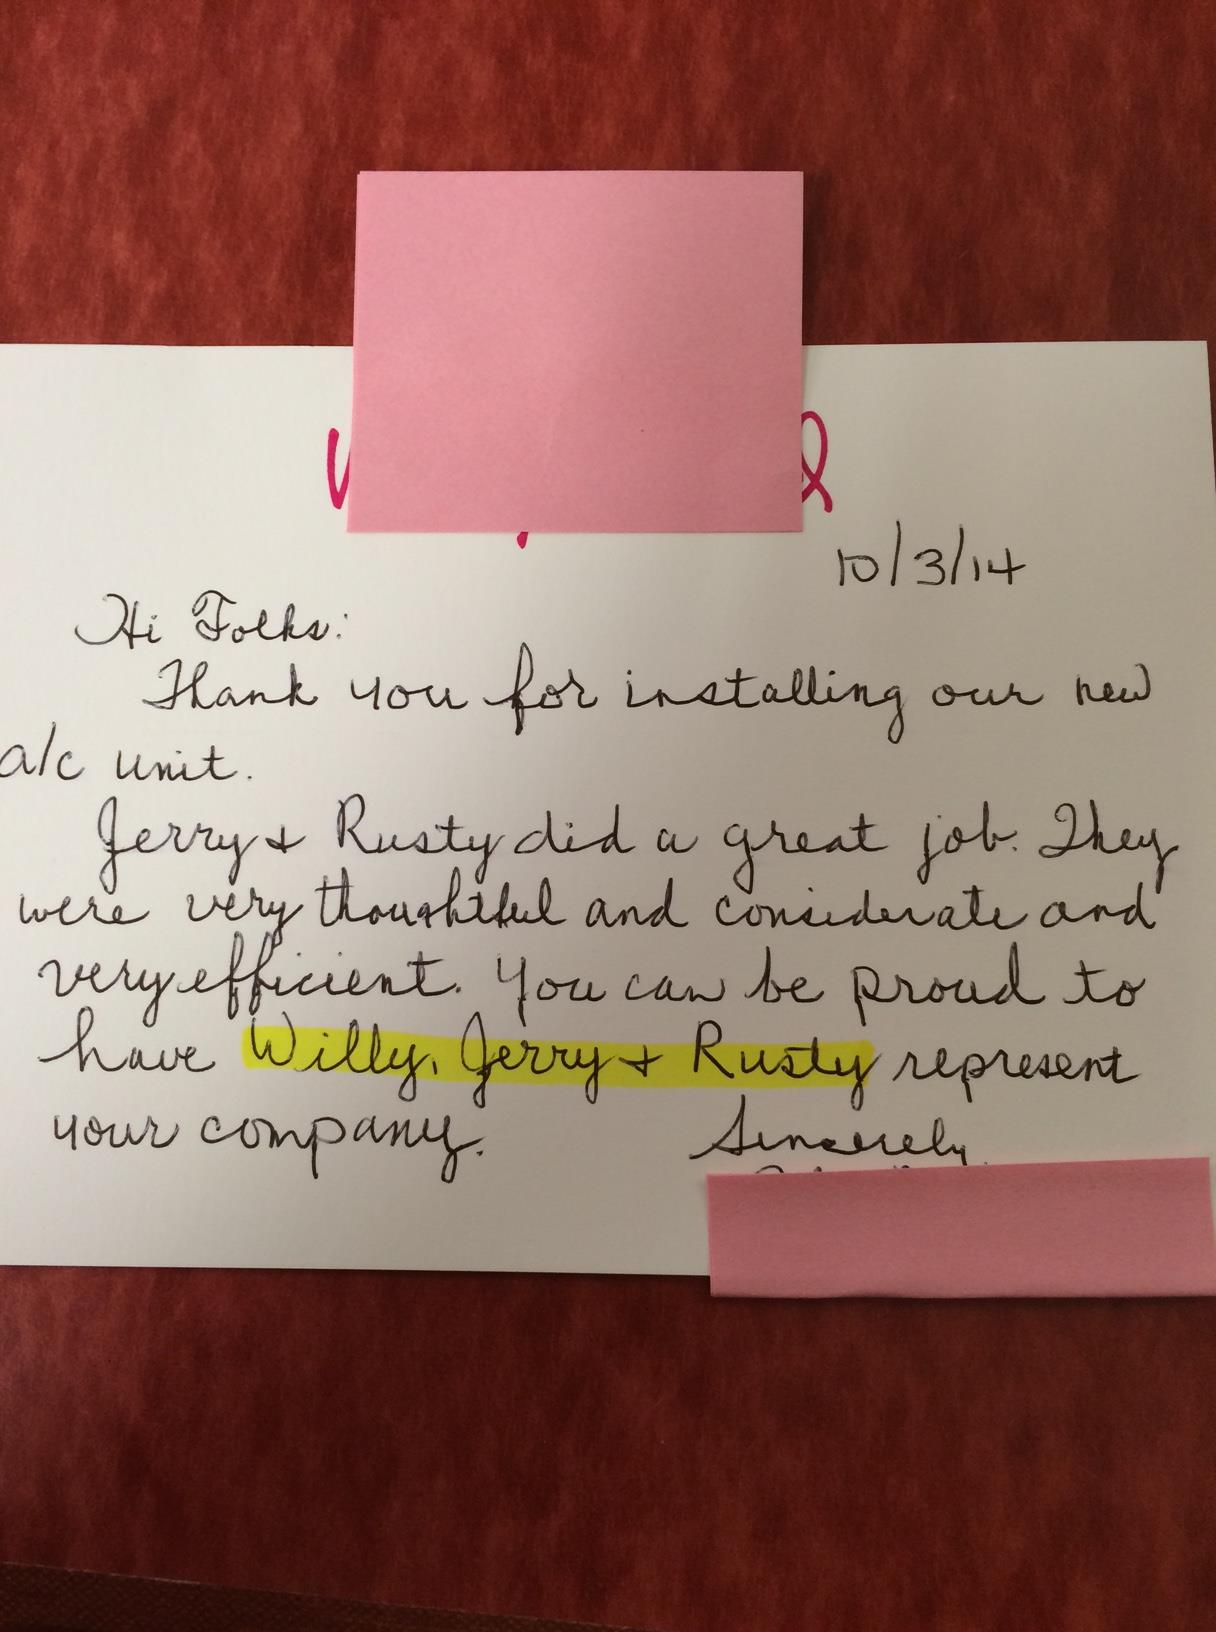 10/3/14
Hi Folks:
Thank you for installing our new
a/c unit.
Jerry + Rusty did a great job. They
were very thoughtful and considerate and
very efficient. You can be proud to
have Willy, Jerry + Rusty represent
your company.
Sincerely